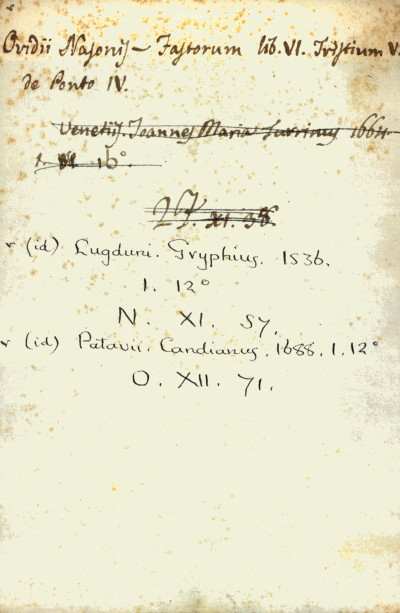 Ovidii Nasonis – Fastorum lib. VI. Tristium V.
de Ponto IV.
Venetiis. Joannes Maria Turrinus 1664
1. 16°
XI. 38.
v (id) Lugduni. Gryphius. 1536.
1. 12°
N. XI. 57.
v (id) Patavii. Candianus, 1688. 1. 12°
O. XII. 71.